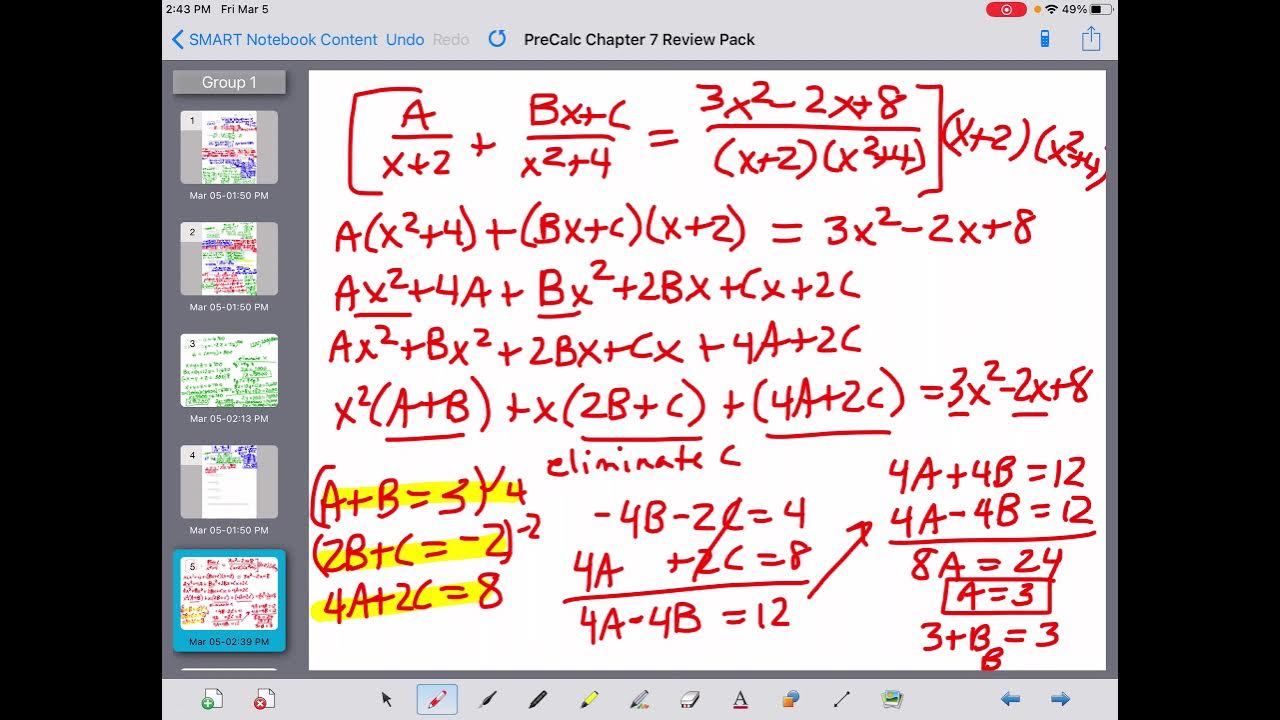 2:43 PM Fri Mar 5
49%
SMART Notebook Content Undo Redo PreCalc Chapter 7 Review Pack
Group 1
1
Mar 05-01:50 PM
2
Mar 05-01:50 PM
3
Mar 05-02:13 PM
4
Mar 05-01:50 PM
5
Mar 05-02:39 PM
[A/(x+2) + (Bx+C)/(x²+4) = (3x²-2x+8)/((x+2)(x²+4))](x+2)(x²+4)
A(x²+4)+(Bx+C)(x+2) = 3x²-2x+8
Ax²+4A+Bx²+2Bx+Cx+2C
Ax²+Bx²+2Bx+Cx+4A+2C
x²(A+B)+x(2B+C)+(4A+2C)=3x²-2x+8
(A+B=3)4
(2B+C=-2)-2
4A+2C=8
eliminate C
-4B-2C=4
4A +2C=8
4A-4B=12
4A+4B=12
4A-4B=12
8A=24
A=3
3+B=3
B
A